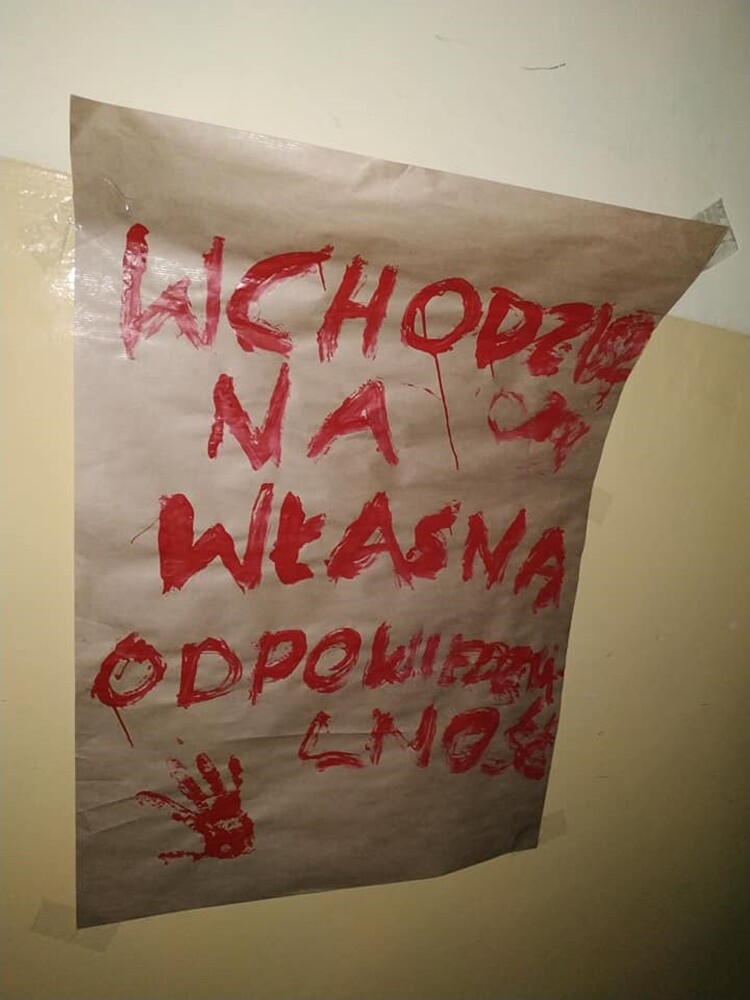 WCHODZISZ
NA
WŁASNĄ
ODPOWIEDZIA-
LNOŚĆ